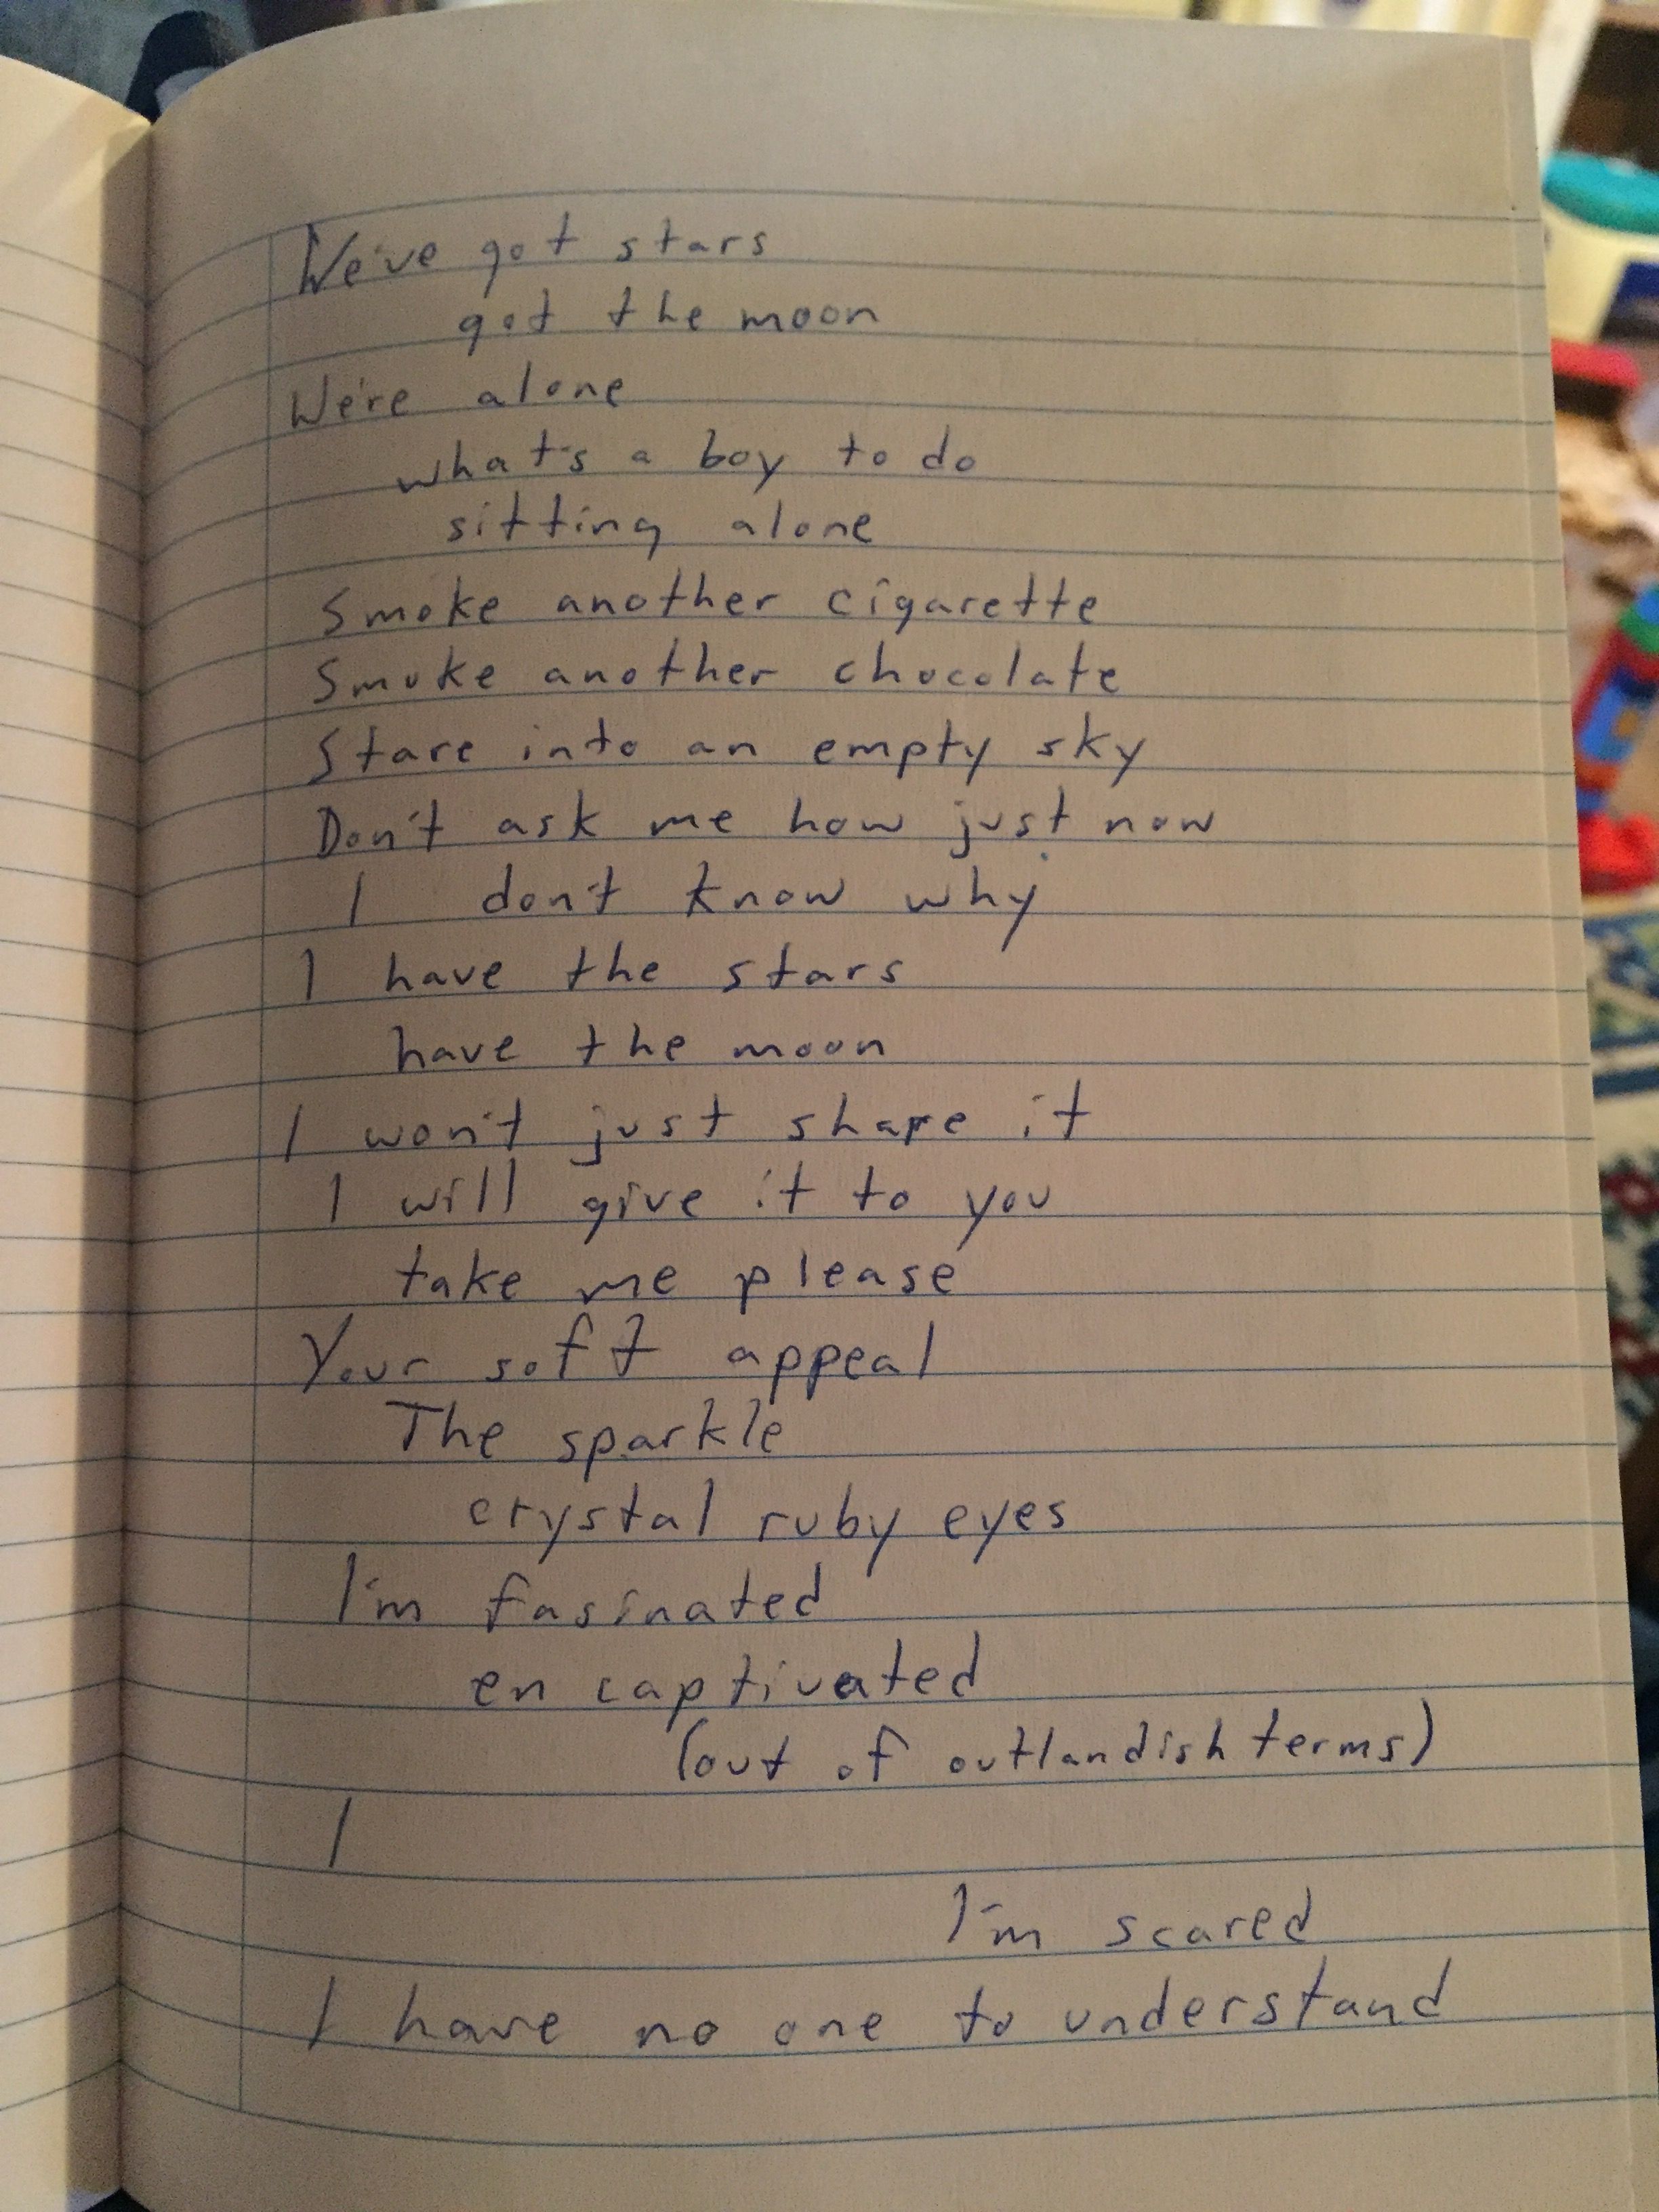 We've got stars
got the moon
We're alone
what's a boy to do
sitting alone
Smoke another cigarette
Smoke another chocolate
Stare into an empty sky
Don't ask me how just now
I don't know why
I have the stars
have the moon
I won't just share it
I will give it to you
take me please
Your soft appeal
The sparkle
crystal ruby eyes
I'm fasinated
en captivated
(out of outlandish terms)
I
I'm scared
I have no one to understand